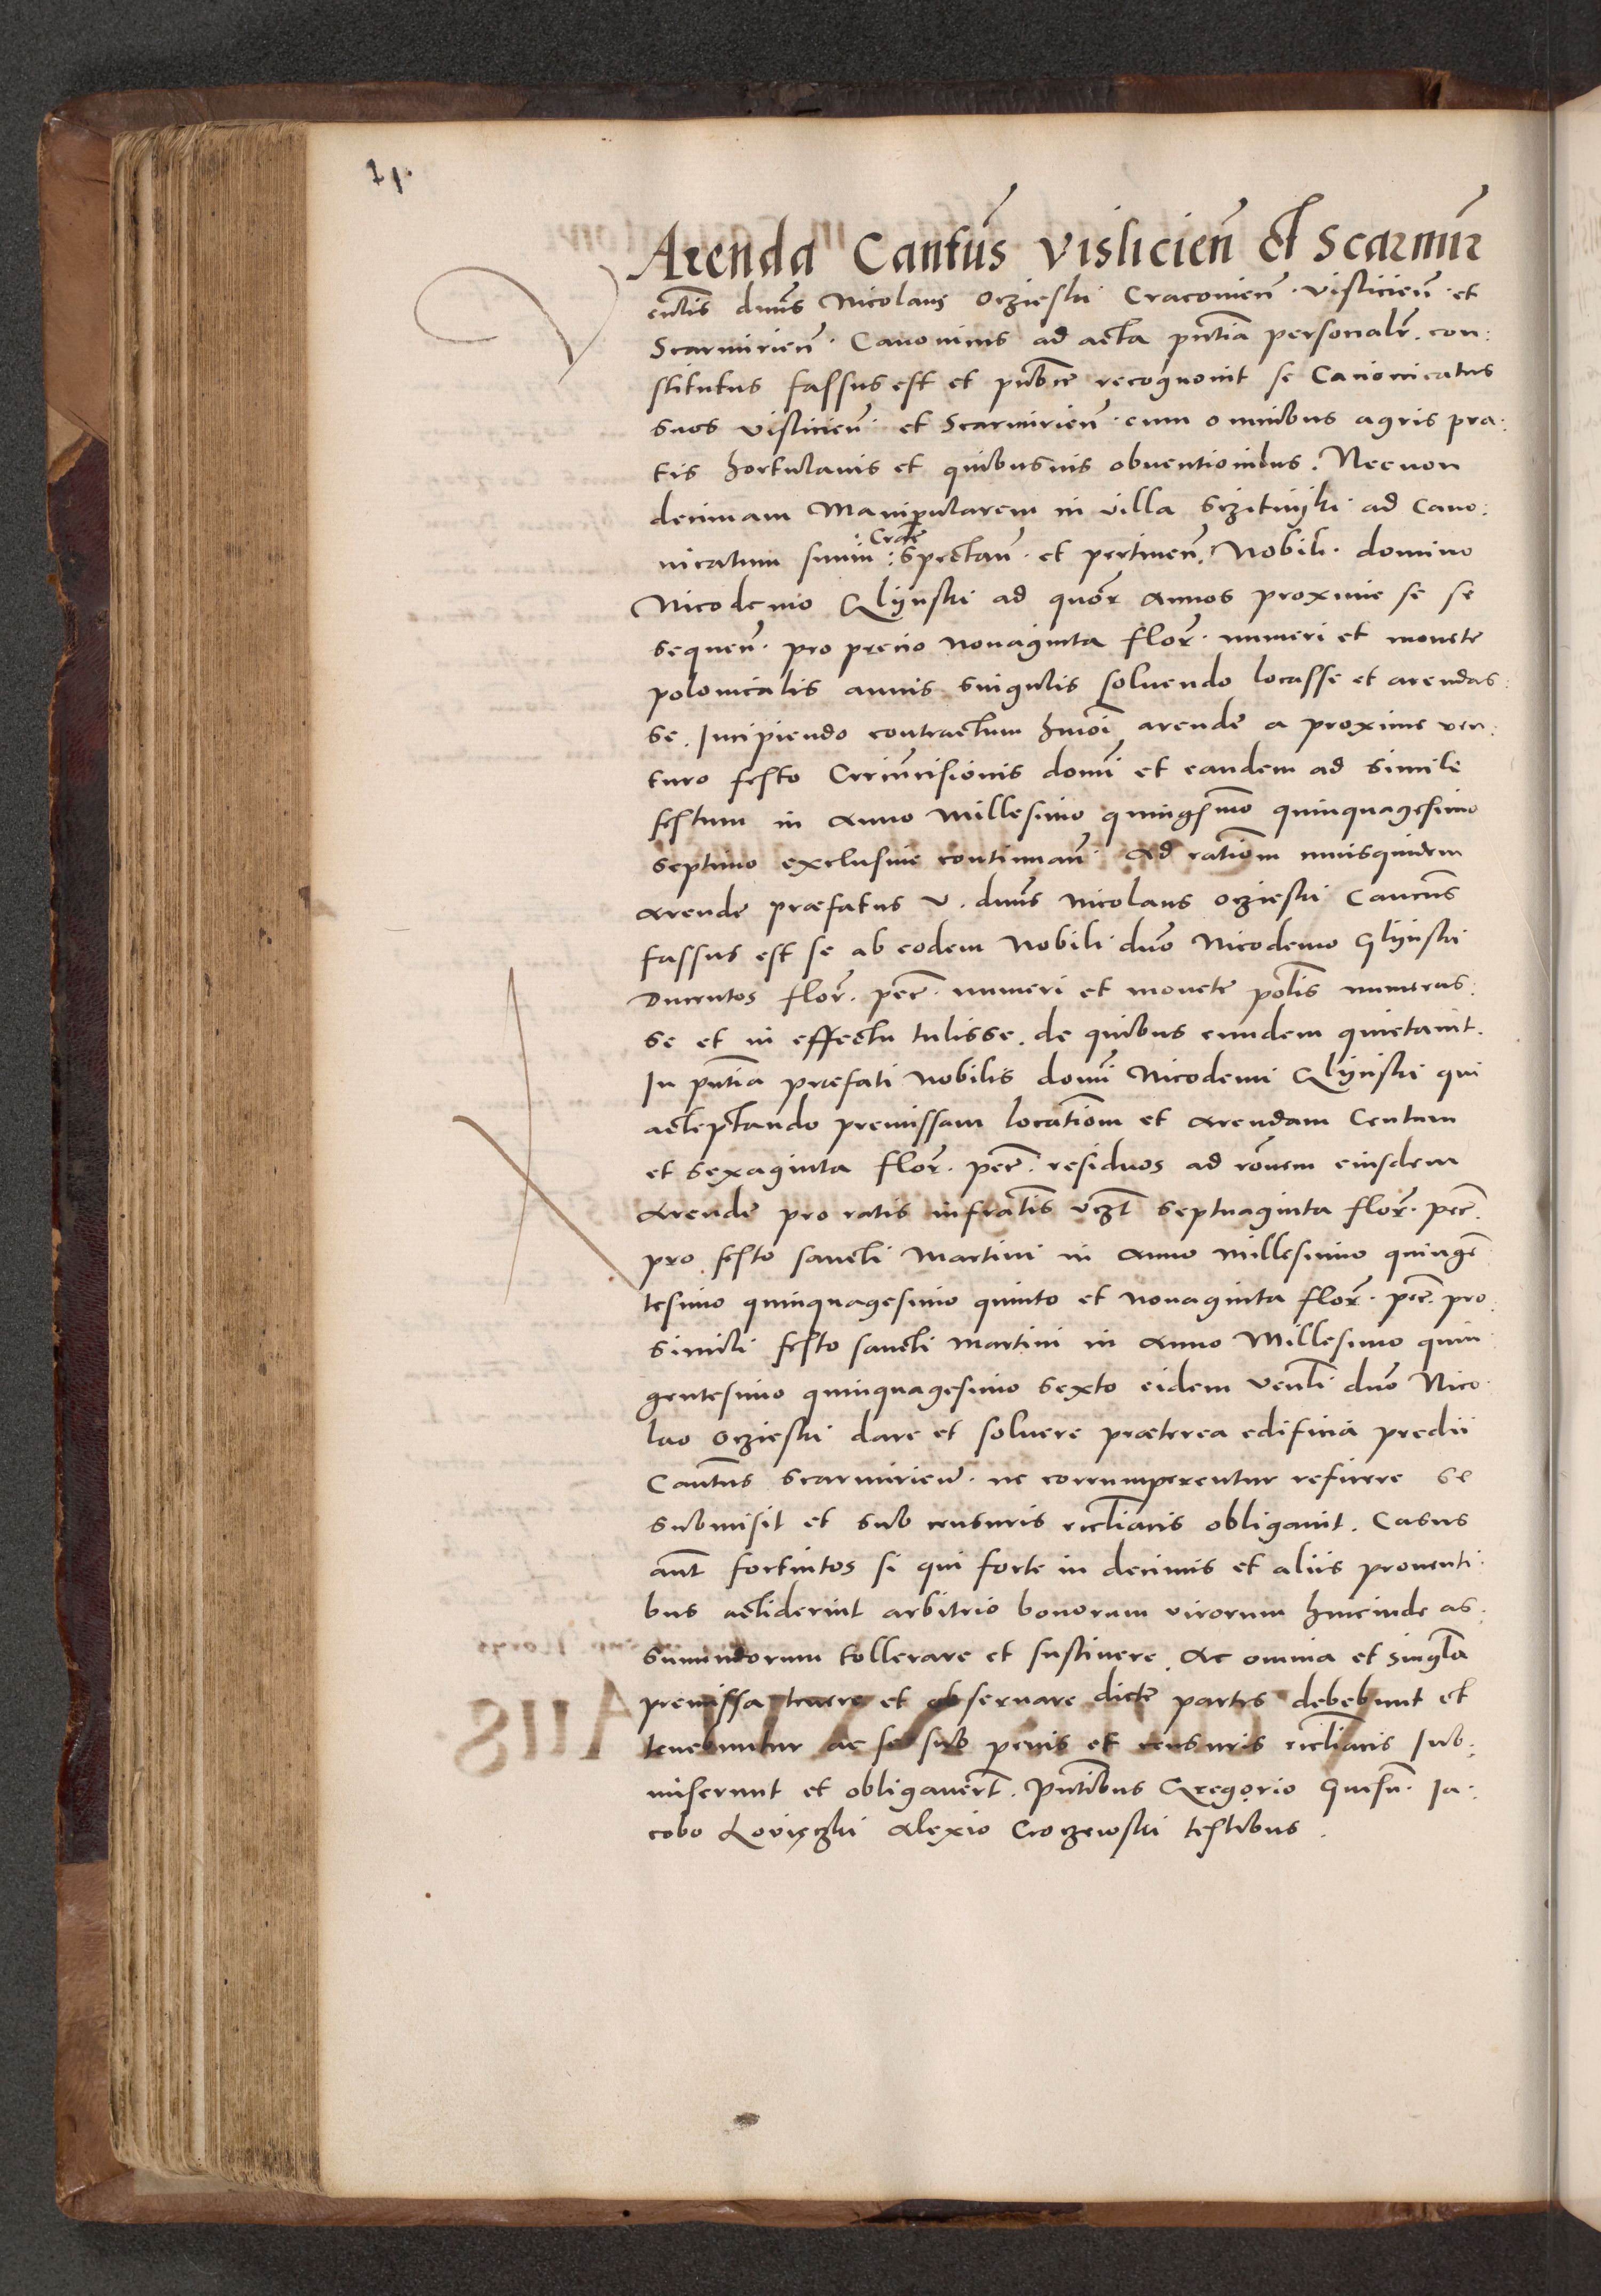 Arenda Cantus vislicien et Scarmir
Venlis dnus Nicolaus oczieski Cracovien. visliciен. et
Scarmirien. Canonicus ad acta pntia personalr. con:
stitutus fassus est et publice recognovit se Canonicatus
suos vislicien. et Scarmirien. cum omnibus agris pra:
tis hortulanis et quibusvis obventionibus. Necnon
decimam Manipularem in villa ad Cano:
nicatum suum : Crac
Spectan. et pertinen. Nobili. domino
Nicodemo Glijnski ad duor annos proxime se se
sequen. pro precio nonaginta flor. numeri et monete
polonicalis annis singulis solvendo locasse et arendas:
se. Incipiendo contractum hmoi arende a proxime ven:
turo festo Circuncisionis domi et eandem ad simile
festum in anno Millesimo quingmo quinquagesimo
septimo exclusive continuan. Ad rationem cuiusquidem
arende praefatus v. dnus Nicolaus oczieski Cancus
fassus est se ab eodem Nobili dno Nicodemo Glijnski
Ducentos flor. pec. numeri et monete polis numeras:
se et in effectu tulisse. de quibus eundem quietavit.
In pntia praefati Nobilis domi Nicodemi Glijnski qui
acceptando premissam locationem et arendam Centum
et sexaginta flor. pec. residuos ad ronem eiusdem
Arende pro ratis infratis vzt septuaginta flor. pec.
pro festo sancti Martini in anno millesimo quingen
tesimo quinquagesimo quinto et nonaginta flor. pec. pro
simili festo sancti martini in anno Millesimo quin
gentesimo quinquagesimo sexto eidem venli dno Nico:
lao oczieski dare et solvere praeterea edificia predii
Cantus scarmirien. ne corrumperentur reficere se
submisit et sub censuris eccliacis obligavit. Casus
aut fortuitos si qui forte in decimis et aliis proventi:
bus acciderint arbitrio bonorum virorum hincinde as:
sumendorum tollerare et sustinere. Ac omnia et singla
premissa tenere et observare dicte partes debebunt et
tenebuntur ac se sub penis et censuris ecclliacis sub:
miserunt et obligavert. pntibus Gregorio Ja:
cobo Alexio Croczewski testibus.